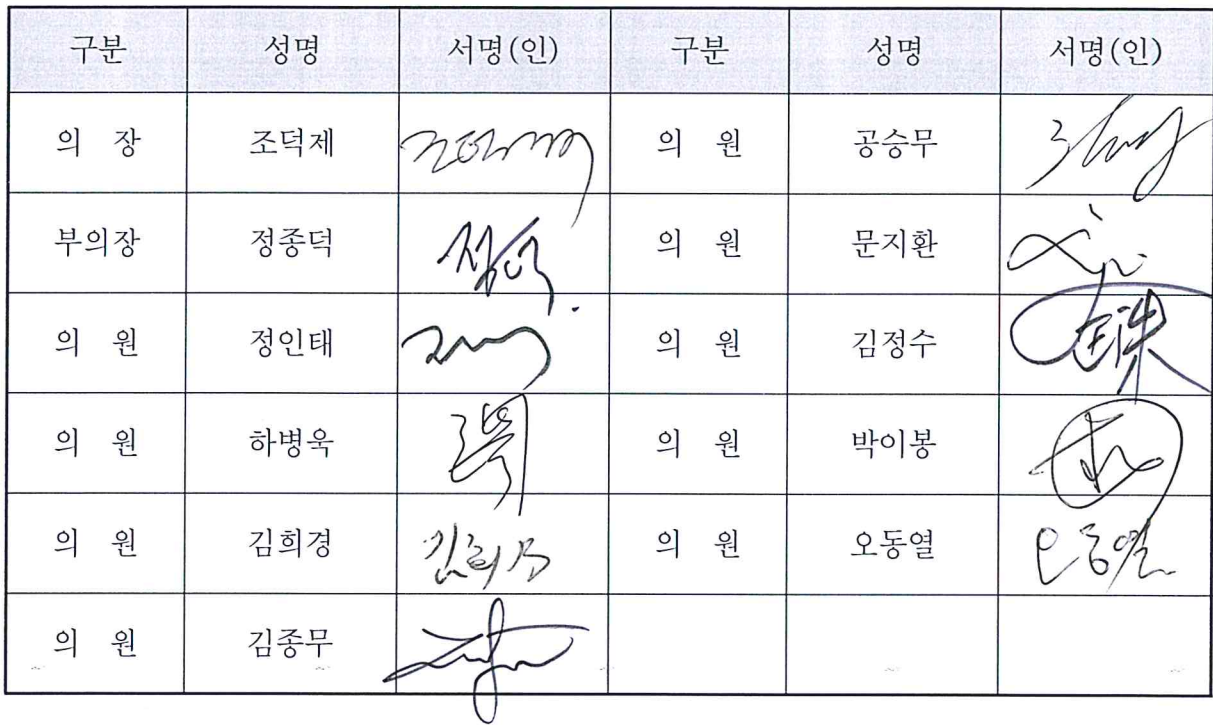 구분 성명 서명(인) 구분 성명 서명(인)
의 장 조덕제 의 원 공승무
부의장 정종덕 의 원 문지환
의 원 정인태 의 원 김정수
의 원 하병욱 의 원 박이봉
의 원 김희경 김희경 의 원 오동열 오동열
의 원 김종무